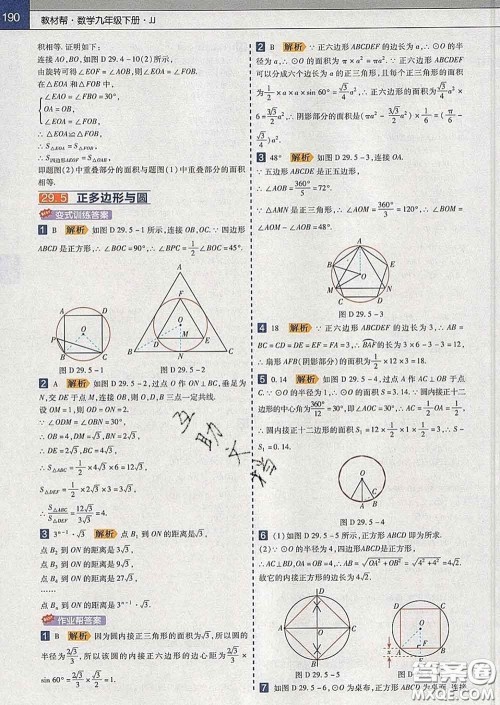 190
教材帮·数学九年级下册·JJ
积相等. 证明如下:
连接 AO,BO,如图 D 29. 4-10(2)所示.
由旋转可得∠EOF = ∠AOB,则∠EOA = ∠FOB.
在△EOA 和△FOB 中,
∠EAO = ∠FBO = 30°,
OA = OB,
∠EOA = ∠FOB,
∴ △EOA≌△FOB,
∴ S△EOA = S△FOB,
∴ S四边形AEOF = S△AOB,
即题图(2)中重叠部分的面积与题图(1)中重叠部分的面积
相等.
29. 5 正多边形与圆
变式训练答案
1 B 解析 如图 D 29. 5-1 所示,连接 OB,OC. ∵ 四边形
ABCD 是正方形,∴ ∠BOC = 90°,∴ ∠BPC = 1/2∠BOC = 45°.
图 D 29. 5-1
图 D 29. 5-2
2 A 解析 如图 D 29. 5-2 所示,过点 O 作 ON⊥BC,垂足为
N,交 DE 于点 M,连接 OB,则 O,D,B 三点一定共线.
设 OM = 1,则 OD = OM = 2.
∵ ∠ODM = ∠OBN = 30°,
∴ OB = 4,DM = √3,BN = 2√3,
∴ DE = 2√3,BC = 4√3,
∴ S△ABC = 1/2 × 4√3 × 6 = 12√3,
S△DEF = 1/2 × 2√3 × 3 = 3√3,
∴ S△ABC/S△DEF = 12√3/3√3 = 4.
3 3ⁿ⁻¹·√3 解析 点 B₁ 到 ON 的距离是√3,
点 B₂ 到 ON 的距离是 3√3,
点 B₃ 到 ON 的距离是 9√3,
点 B₄ 到 ON 的距离是 27√3,
……
点 Bₙ 到 ON 的距离是 3ⁿ⁻¹·√3.
作业帮答案
1 B 解析 因为圆内接正三角形的面积为√3,所以圆的
半径为 2√3/3,所以该圆的内接正六边形的边心距为 2√3/3 ×
sin 60° = 2√3/3 × √3/2 = 1.
2 B 解析 ∵ 正六边形 ABCDEF 的边长为 a,∴ ⊙O 的半
径为 a,∴ ⊙O 的面积为 π × a² = πa². ∵ 空白正六边形的面
积为六个边长为 a 的正三角形,且每个正三角形的面积为
1/2 × a × a × sin 60° = √3/4 a²,∴ 正六边形的面积为 6 × √3/4 a² =
3√3/2 a²,∴ 阴影部分的面积为 (πa² − 3√3/2 a²) × 1/6 = (π/6 −
√3/4)a².
3 48° 解析 如图 D 29. 5-3,连接 OA.
∵ 五边形 ABCDE 是正五边形,
∴ ∠AOB = 360°/5 = 72°.
∵ △AMN 是正三角形,∴ ∠AOM = 360°/3 = 120°,
∴ ∠BOM = ∠AOM − ∠AOB = 48°.
图 D 29. 5-3
4 18 解析 ∵ 正六边形 ABCDEF 的边长为 3,∴ AB =
BC = CD = DE = EF = FA = 3,∴ BAF 的长为 3 × 6 − 3 − 3 = 12,
∴ 扇形 AFB(阴影部分)的面积为 1/2 × 12 × 3 = 18.
5 0. 14 解析 如图 D 29. 5-4,过点 A 作 AC⊥OB 于点
C. ∵ ⊙O 的半径为 1,∴ ⊙O 的面积 S = π. ∵ 圆内接正十二
边形的中心角为 360°/12 = 30°,∴ AC = 1/2 OA = 1/2 × 1 = 1/2,
∴ 圆内接正十二边形的面积 S₁ = 12 × 1/2 × 1 × 1/2 = 3,∴ S −
S₁ = 0. 14.
图 D 29. 5-4
6 (1)如图 D 29. 5-5 所示,正方形 ABCD 即为所求.
(2)∵ ⊙O 的半径为 4,四边形 ABCD 是正方形,
∴ ∠AOB = 90°,∴ AB = √(OA² + OB²) = √(4² + 4²) = 4√2.
故它的内接正方形的边长为 4√2.
图 D 29. 5-5
图 D 29. 5-6
7 如图 D 29. 5-6,⊙O 为桌布,正方形 ABCD 为桌面,连接